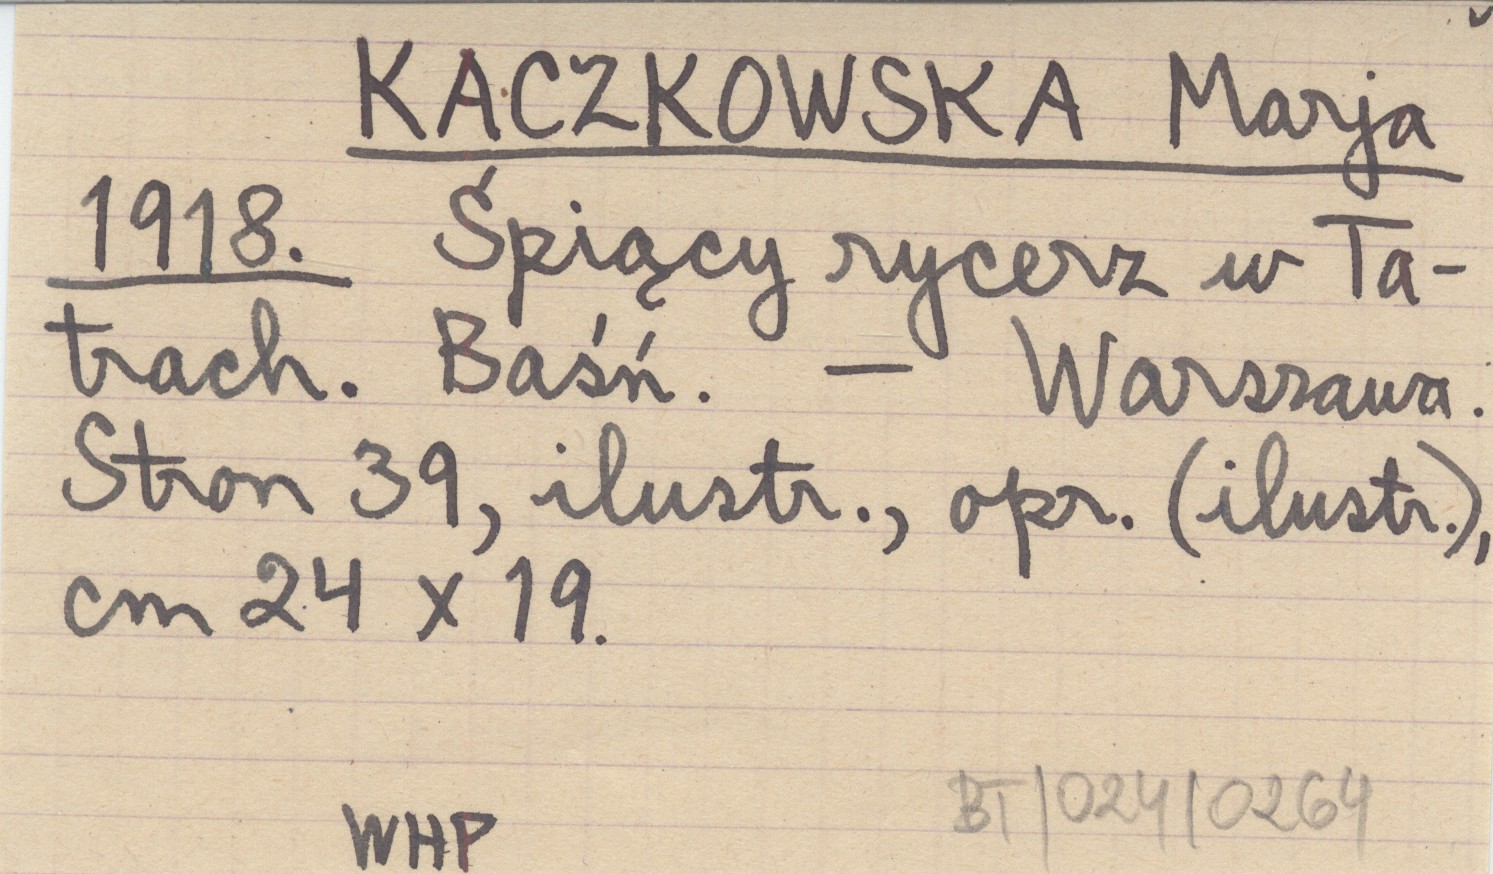 KACZKOWSKA Marja
1918. Śpiący rycerz w Ta-
trach. Baśń. — Warszawa.
Stron 39, ilustr., opr. (ilustr.),
cm 24 x 19.
BT/024/0264
WHP